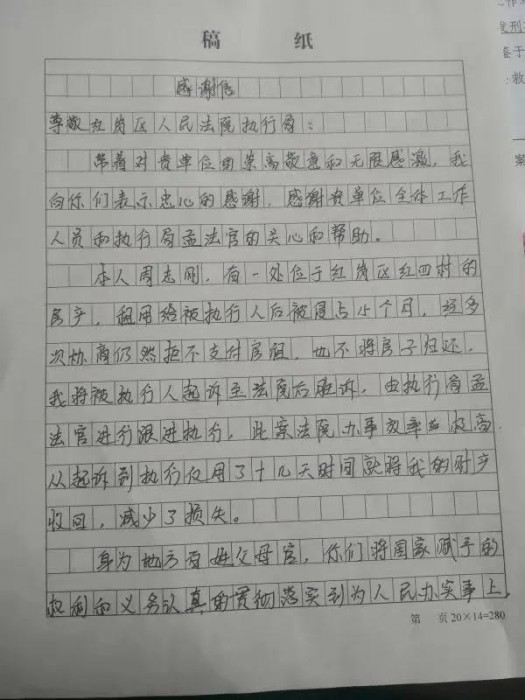 稿 纸
感谢信
尊敬红岗区人民法院执行局：
带着对贵单位由崇高敬意和无限感激，我
向你们表示忠心的感谢，感谢贵单位全体工作
人员和执行局孟法官的关心和帮助。
本人周志刚，有一处位于红岗区红四村的
房产，租用给被执行人后被侵占4个月，经多
次协商仍然拒不支付房租，也不将房子归还，
我将被执行人起诉至法院后胜诉，由执行局孟
法官进行跟进执行，此案法院办事效率极高
从起诉到执行仅用了十几天时间就将我的财产
收回，减少了损失。
身为地方百姓父母官，你们将国家赋予的
权利和义务认真的贯彻落实到为人民办实事上，
第 页 20×14=280